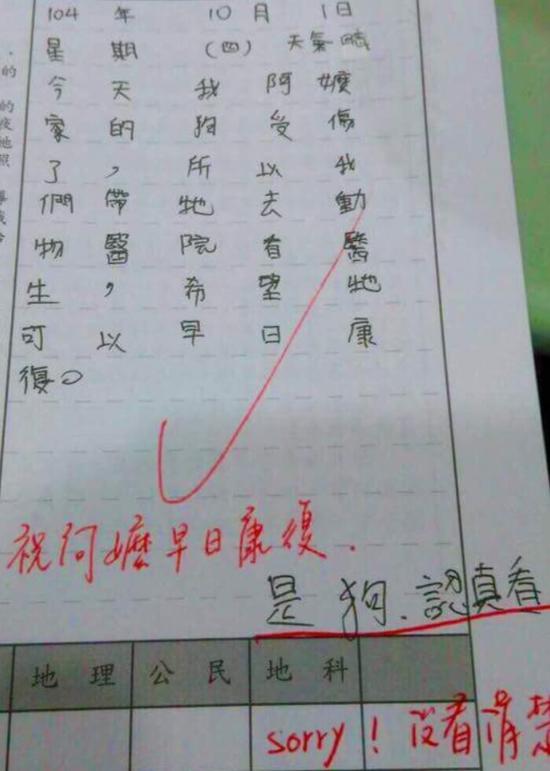 104 年 10 月 1日
星期 (四) 天氣晴
今天我阿嬤
家的狗受傷
了，所以我
們帶牠去動
物醫院看醫
生，希望牠
可以早日康
復。
祝阿嬤早日康復.
是狗.認真看
地理 公民 地科
sorry！沒看清楚